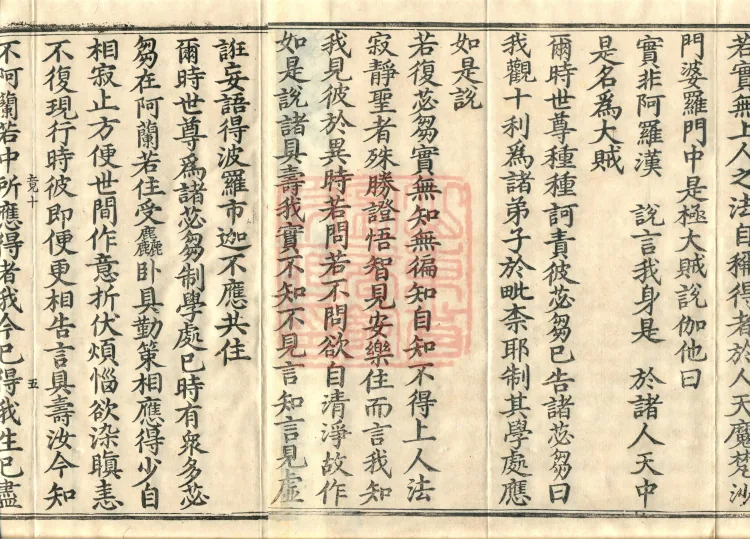 若實無上人之法自稱得者於人天魔梵沙
門婆羅門中是極大賊說伽他曰
實非阿羅漢　說言我身是　於諸人天中
是名爲大賊
爾時世尊種種訶責彼苾芻已告諸苾芻曰
我觀十利爲諸弟子於毗柰耶制其學處應
如是說
若復苾芻實無知無徧知自知不得上人法
寂靜聖者殊勝證悟智見安樂住而言我知
我見彼於異時若問若不問欲自清淨故作
如是說諸具壽我實不知不見言知言見虛
誑妄語得波羅市迦不應共住
爾時世尊爲諸苾芻制學處已時有衆多苾
芻在阿蘭若住受麤臥具勤策相應得少自
相寂止方便世間作意折伏煩惱欲染瞋恚
不復現行時彼即便更相告言具壽汝今知
竟十　五
不阿蘭若中所應得者我今已得我生已盡